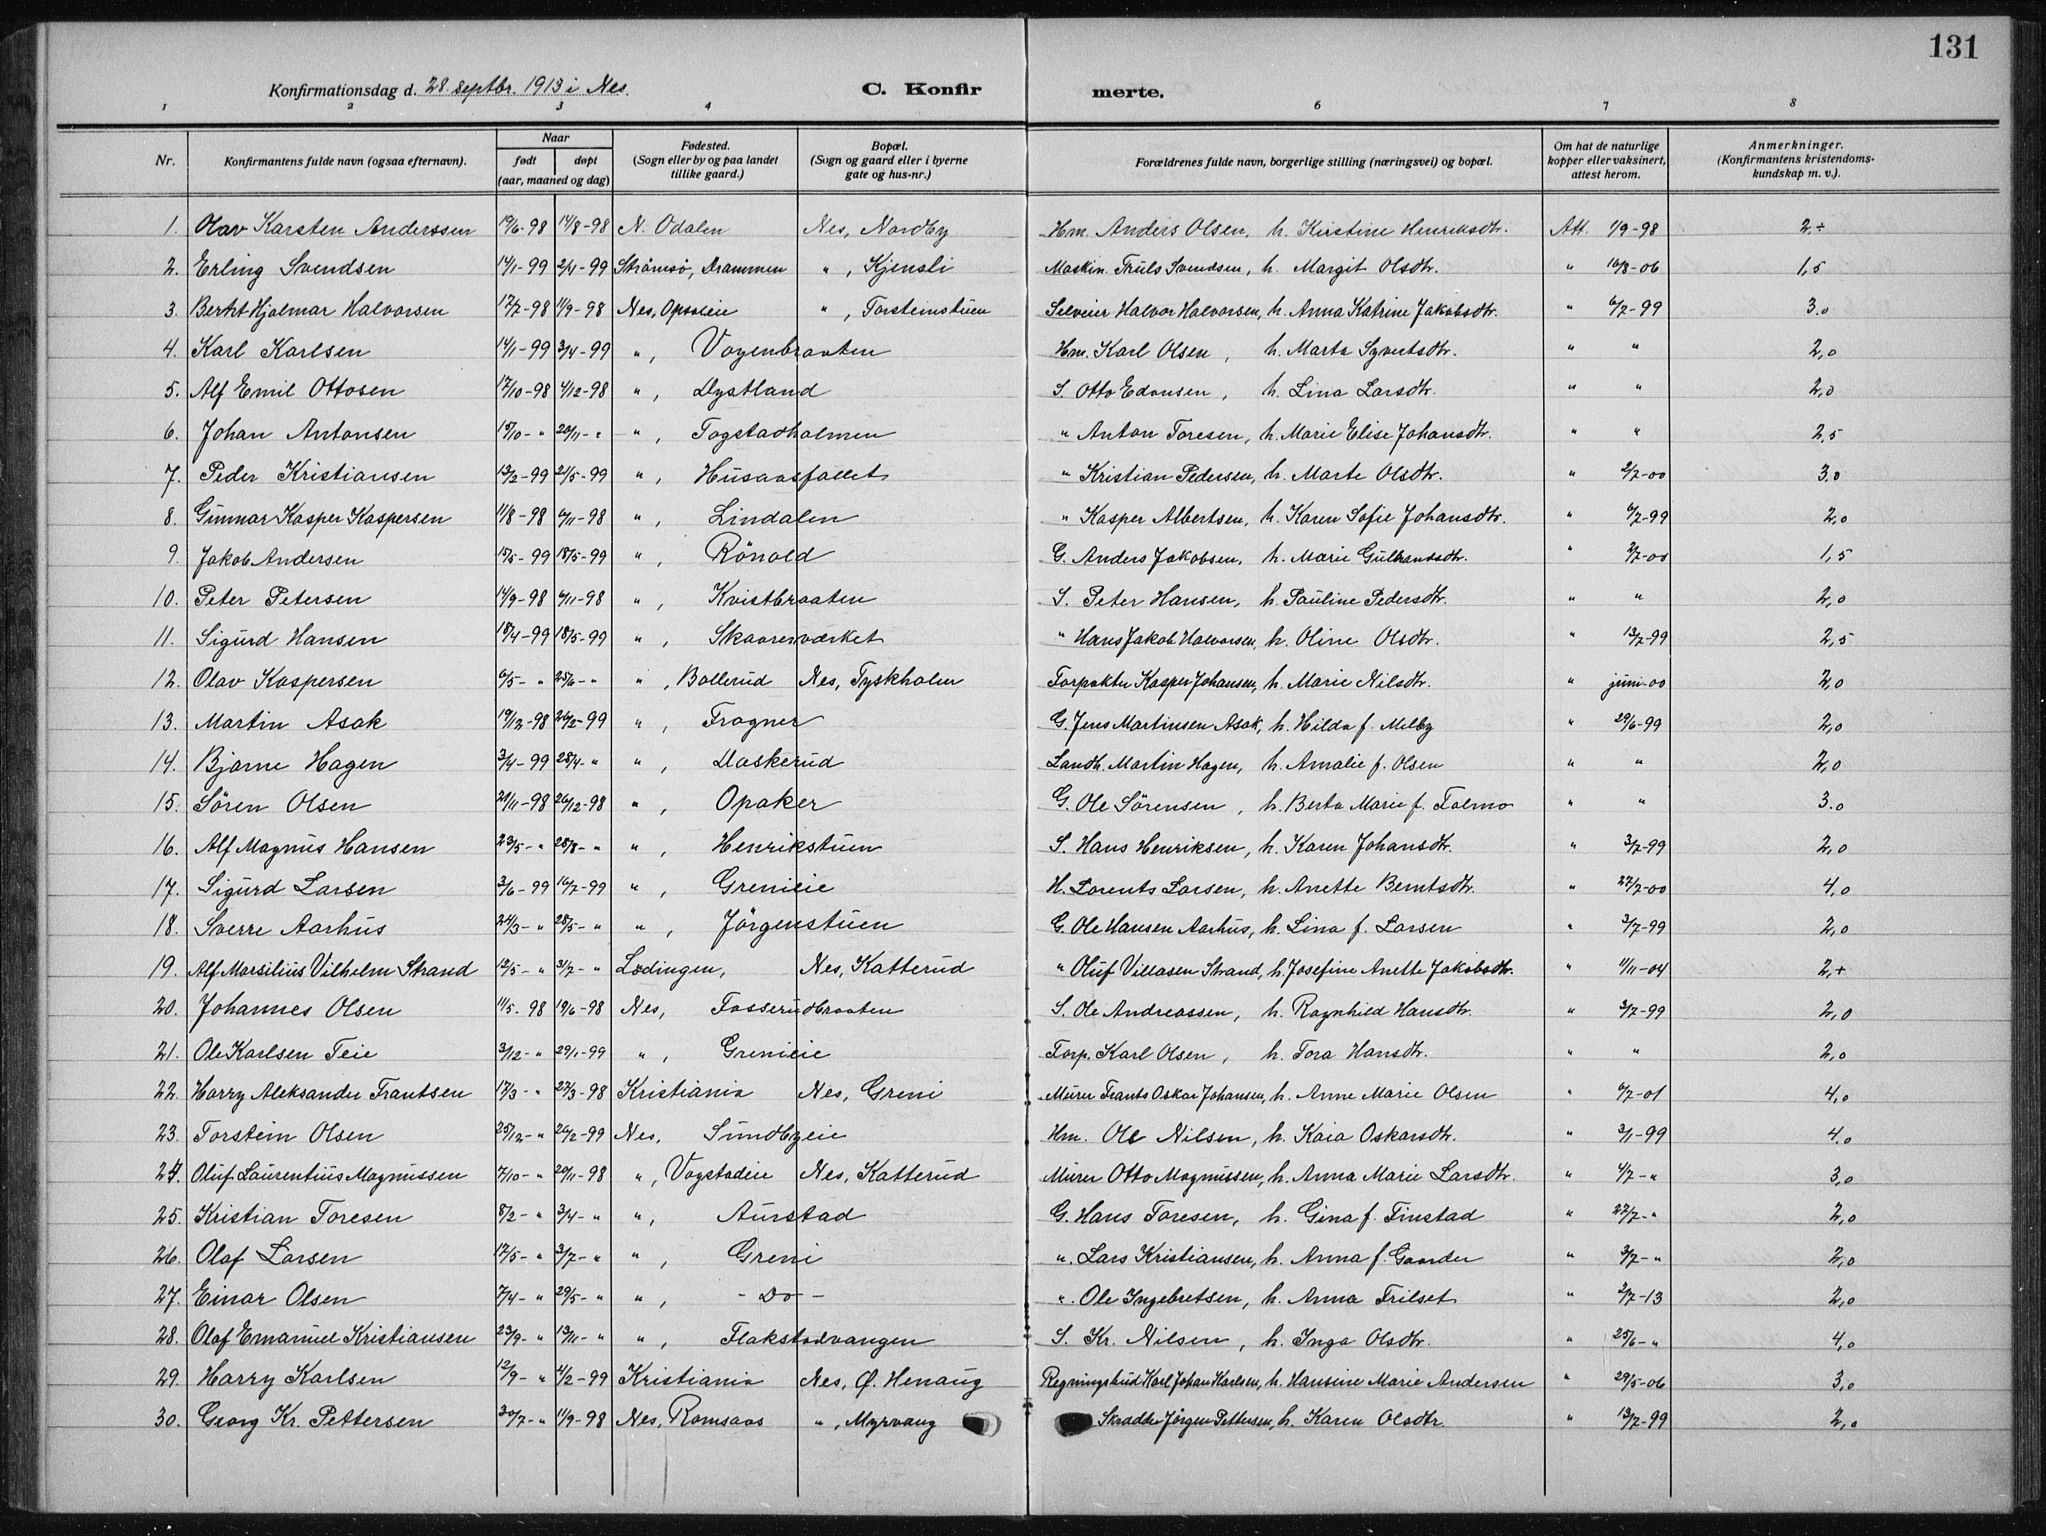 131
Konfirmationsdag d. 28. septbr. 1913 i Nes. C. Konfir merte.
1 2 3 4 6 7 8
Nr. Konfirmantens fulde navn (ogsaa efternavn). Naar født døpt (aar, maaned og dag) Fødested. (Sogn eller by og paa landet tillike gaard.) Bopæl. (Sogn og gaard eller i byerne gate og hus-nr.) Forældrenes fulde navn, borgerlige stilling (næringsvei) og bopæl. Om hat de naturlige kopper eller vaksinert, attest herom. Anmerkninger. (Konfirmantens kristendoms-kundskap m. v.).
1. Olav Karsten Anderssen 19/6-98 14/8-98 N. Odalen Nes, Nordby Hm. Anders Olsen, h. Kirstine Henriksdtr. Att. 1/9-98 2,÷
2. Erling Svendsen 14/1-99 2/4-99 Strømsø, Drammen " , Kjensli Maskin. Truls Svendsen, h. Margit Olsdtr. " 16/8-06 1,5
3. Berht Hjalmar Halvorsen 17/7-98 11/9-98 Nes, Opsaleie " , Torsteinstuen Selveier Halvor Halvorsen, h. Anna Katrine Jakobsdtr. " 6/7-99 3.0
4. Karl Karlsen 14/1-99 3/4-99 " , Voyenbraaten Hm. Karl Olsen , h. Marta Syvertsdtr. " " 2,0
5. Alf Emil Ottosen 17/10-98 4/12-98 " , Dystland S. Otto Edansen , h. Lina Larsdtr. " " 2,0
6. Johan Antonsen 15/10- " 20/11- " " , Togstadholmen " Anton Toresen, h. Marie Elise Johansdtr. " " 2,5
7. Peder Kristiansen 13/2-99 21/5-99 " , Husaasfallet " Kristian Pedersen, h. Marte Olsdtr. " 2/7-00 3,0
8. Gunnar Kasper Kaspersen 11/8-98 6/11-98 " , Lindalen " Kasper Albertsen, h. Karen Sofie Johansdtr. " 6/7-99 2,0
9. Jakob Andersen 15/5-99 18/5-99 " , Rönold G. Anders Jakobsen, h. Marie Gulbrandsdtr. " 2/7-00 1,5
10. Peter Petersen 14/9-98 6/11-98 " , Kvistbraaten S. Peter Hansen, h. Pauline Pedersdtr. " " 2,0
11. Sigurd Hansen 18/4-99 18/5-99 " , Skaaresværket " Hans Jakob Halvorsen, h. Oline Olsdtr. " 13/7-99 2,5
12. Olav Kaspersen 6/5- " 25/6- " " , Bollerud Nes, Tyskholm Forpakter Kasper Johansen, h. Marie Nilsdtr. " juni-00 2,0
13. Martin Asak 19/12-98 26/2-99 " , Frogner G. Jens Martinsen Asak, h. Hilda f. Melby " 29/6-99 2,0
14. Bjarne Hagen 3/4-99 28/4- " " , Daskerud Landh. Martin Hagen, h. Amalie f. Olsen " " 2,0
15. Søren Olsen 21/11-98 26/12-98 " , Opaker G. Ole Sørensen , h. Berta Marie f. Folmo " " 3.0
16. Alf Magnus Hansen 23/5- " 28/8- " " , Henrikstuen S. Hans Henriksen, h. Karen Johansdtr. " 3/7-99 2,0
17. Sigurd Larsen 3/6-99 16/7-99 " , Grenieie H. Lorents Larsen, h. Anette Berntsdtr. " 27/7-00 4,0
18. Sverre Aarhus 24/3- " 28/5- " " , Jörgenstuen G. Ole Hansen Aarhus, h. Lina f. Larsen " 3/7-99 2,0
19. Alf Marsilius Vilhelm Strand 12/5- " 31/7- " Lødingen, Nes, Katterud " Oluf Villasen Strand, h. Josefine Anette Jakobsdtr. " 11/11-04 2,+
20. Johannes Olsen 11/5. 98 19/6-98 Nes, Fosserudbraaten S. Ole Andreassen, h. Ragnhild Hansdtr. " 3/7-99 2,0
21. Ole Karlsen Teie 3/12- " 29/1-99 " , Grenieie Forp. Karl Olsen , h. Tora Hansdtr. " " 2,0
22. Harry Aleksander Frantsen 17/3- " 27/3-98 Kristiania Nes, Greni Murer Frants Oskar Johansen, h. Anne Marie Olsen " 6/7-01 4,0
23. Torstein Olsen 25/12- " 26/2-99 Nes, Sundbyeie Hm. Ole Nilsen, h. Kaia Oskarsdtr. " 3/1-99 4.0
24. Oluf Laurentius Magnussen 7/10- " 20/11-98 " , Vogstadeie Nes, Katterud Murer Otto Magnussen, h. Anna Marie Larsdtr. " 4/7- " 3,0
25. Kristian Toresen 8/2- " 3/4- " " , Aurstad G. Hans Toresen, h. Gina f. Finstad " 27/7- " 2,0
26. Olaf Larsen 17/5- " 3/7- " " , Greni ". Lars Kristiansen, h. Anna f. Gaarder " 3/7- " 2,0
27. Einar Olsen 7/4- " 29/5- " " , - Do - ". Ole Ingebretsen, h. Anna Trilset " 2/7-13 2,0
28. Olaf Emanuel Kristiansen 23/9- " 13/11- " " , Flakstadvangen S. Kr. Nilsen , h. Inga Olsdtr. " 25/6- " 4,0
29. Harry Karlsen 12/9- " 4/2-99 Kristiania Nes, Ø. Henaug Regningsbud Karl Johan Karlsen, h. Hansine Marie Andersen " 29/5-06 3,0
30. Georg Kr. Pettersen 30/7- " 11/9-98 Nes, Romsaas " , Myrvang Skrædder Jørgen Pettersen, h. Karen Olsdtr. " 13/7-99 2,0